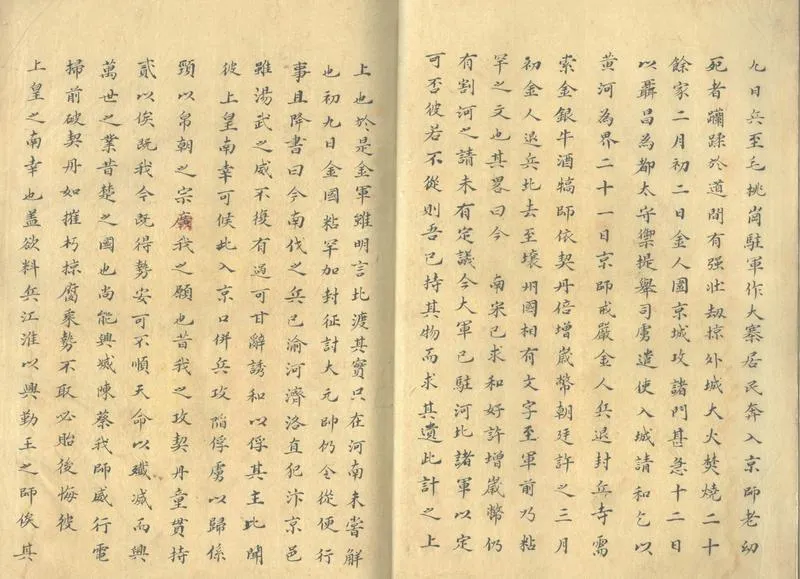 九日兵至毛桃崗駐軍作大寨居民奔入京師老幼
死者躪蹂於道間有强壮刼掠外城大火焚燒二十
餘家二月初二日金人圍京城攻諸門甚急十二日
以聶昌為都太守禦提舉司虜遣使入城請和乞以
黄河為界二十一日京師戒嚴金人兵退封兵寺需
索金銀牛酒犒師依契丹倍增歲幣朝廷許之三月
初金人退兵北去至壤州國相有文字至軍前乃粘
罕之文也其畧曰今 南宋已求和好許增歲幣仍
有割河之請未有定議今大軍已駐河北諸軍以定
可否彼若不從則吾已持其物而求其遺此計之上
上也於是金軍雖明言北渡其實只在河南未嘗解
也初九日金國粘罕加封征討大元帥仍令從便行
事且降書曰今南伐之兵已渝河濟洛直犯汴京邑
雖湯武之威不復有道可甘辭誘和以俘其主比聞
彼上皇南幸可候此入京口併兵攻陷俘虜以歸係
頸以帛朝之宗廟我之願也昔我之攻契丹童貫持
貳以俟既我今既得勢安可不順天命以殲滅而興
萬世之業昔楚之國也尚能興滅陳蔡我師威行電
掃前破契丹如摧朽掠腐乘勢不取必貽後悔彼
上皇之南幸也蓋欲料兵江淮以興勤王之師俟其